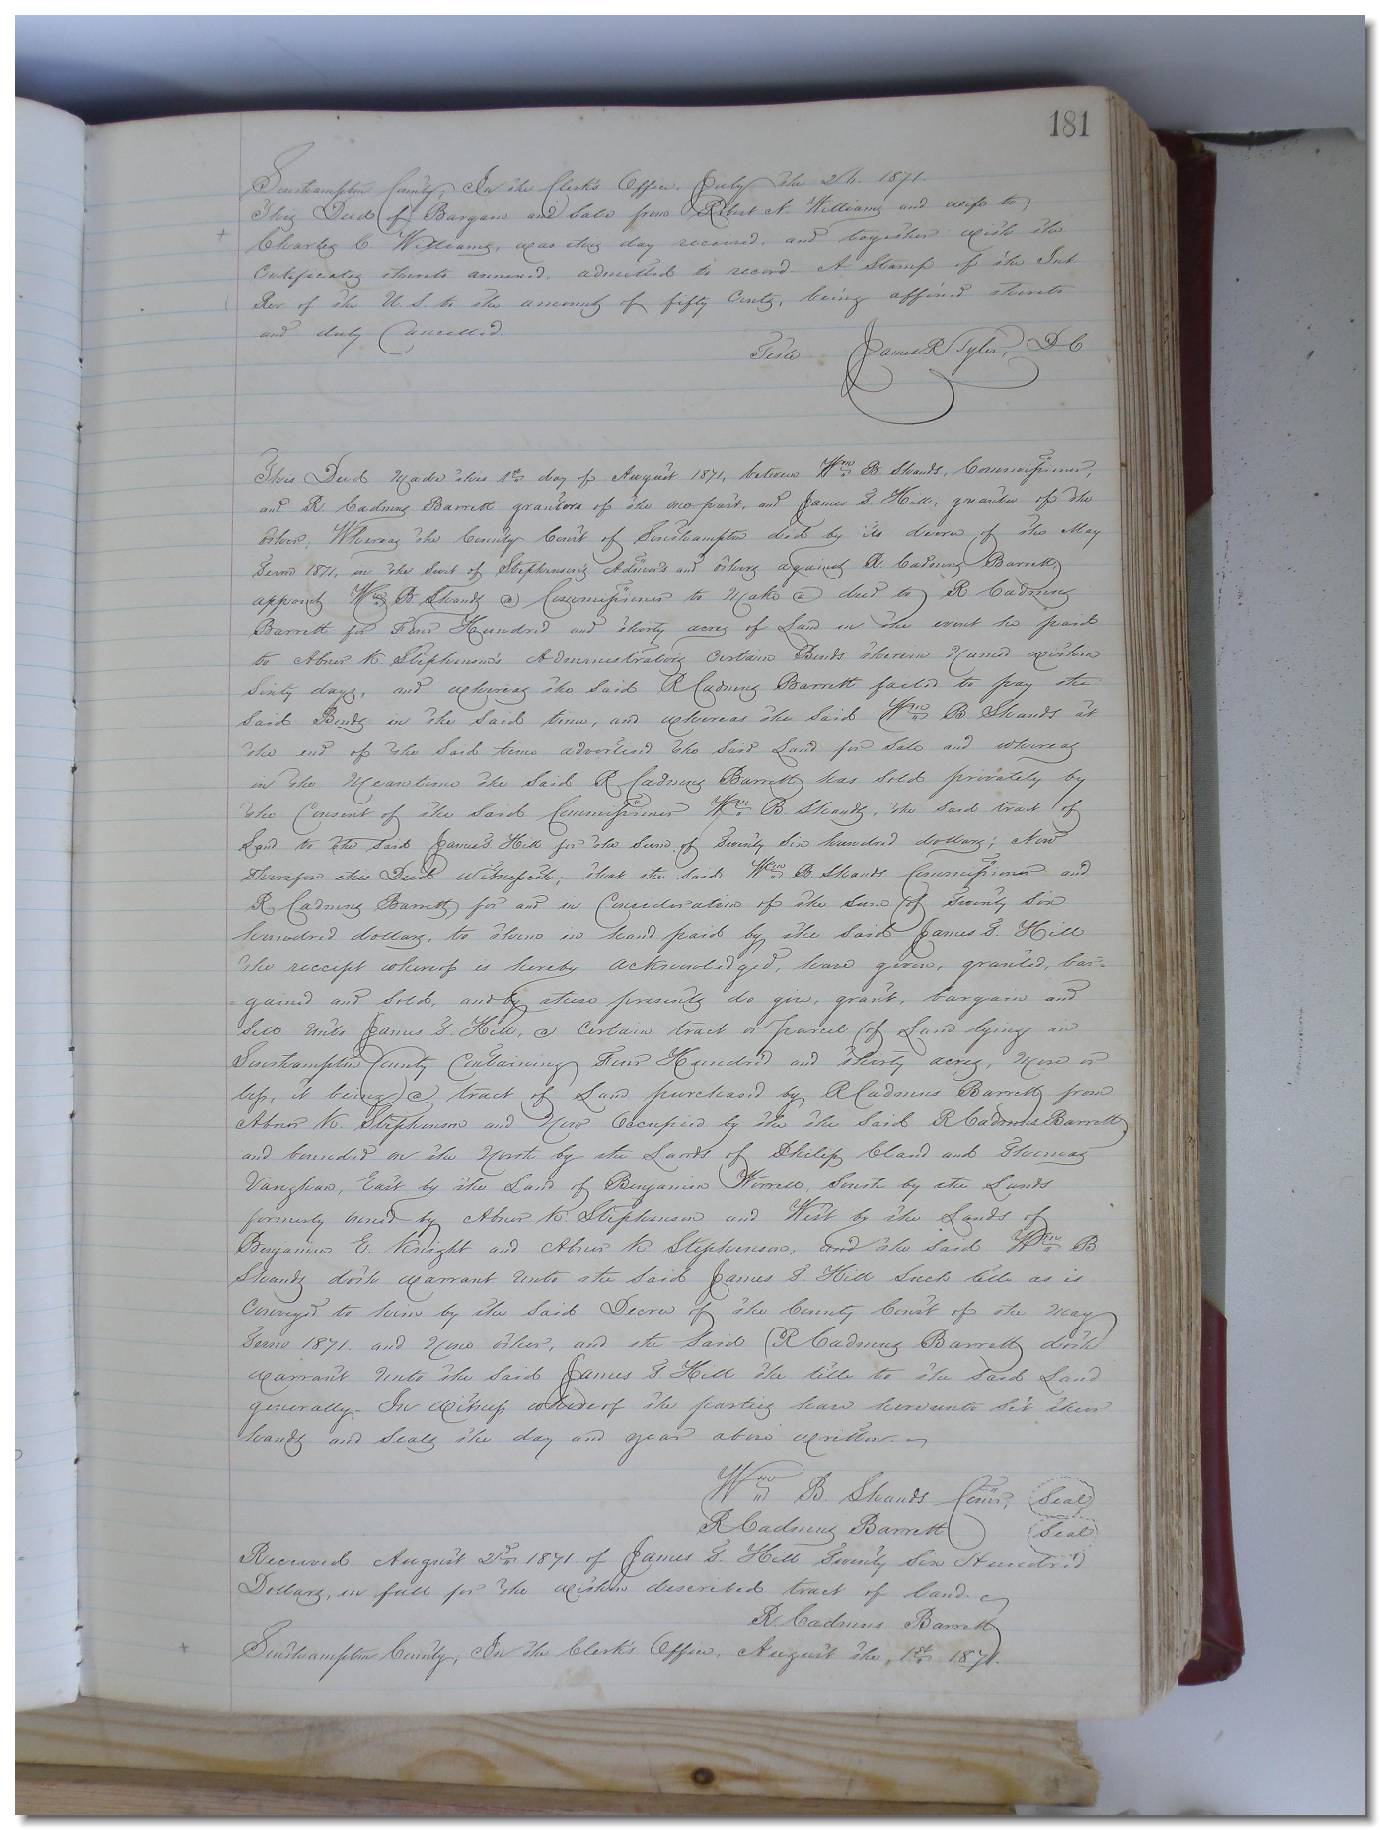 181
Southampton County, In the Clerk's Office, July the 26. 1871.
This Deed of Bargain and Sale from Robert N. Williams and wife to
Charles C. Williams, was this day received, and together with the
Certificates thereto annexed, admitted to record. A Stamp of the Int
Rev of the U. S. to the amount of fifty Cents, being affixed thereto
and duly Cancelled.
Teste James R Tyler, D C
This Deed Made this 1st day of August 1871, between Wm B Shands, Commissioner,
and R Cadmus Barrett grantors of the one part, and James T. Hill, grantee of the
other; Whereas the County Court of Southampton did by its decree of the May
Term 1871, in the Suit of Stephenson's Admor's and others against R Cadmus Barrett,
appoint Wm B Shands a Commissioner to Make a deed to R Cadmus
Barrett for Four Hundred and thirty acres of Land in the event he paid
to Abner K. Stephenson's Administrators Certain Bonds therein Named within
Sixty days, and whereas the Said R Cadmus Barrett failed to pay the
Said Bonds in the Said time, and whereas the Said Wm B Shands at
the end of the Said time advertised the Said Land for Sale and whereas
in the Meantime the Said R Cadmus Barrett has Sold privately by
the Consent of the Said Commissioner Wm B Shands, the Said tract of
Land to the Said James T. Hill for the Sum of Twenty Six hundred dollars; Now
therefor this Deed Witnesseth, that the Said Wm B Shands Commissioner and
R Cadmus Barrett for and in Consideration of the Sum of Twenty Six
hundred dollars, to them in hand paid by the Said James T. Hill
the receipt whereof is hereby acknowledged, have given, granted, bar=
=gained and Sold, and by these presents do give, grant, bargain and
Sell Unto James T. Hill, a certain tract or parcel of Land lying in
Southampton County Containing Four Hundred and thirty acres, More or
less, it being a tract of Land purchased by R Cadmus Barrett from
Abner K. Stephenson and Now Occupied by the the Said R Cadmus Barrett
and bounded on the North by the Lands of Philip Cland and Thomas
Vaughan, East by the Land of Benjamin Worrell, South by the Lands
formerly owned by Abner K. Stephenson and West by the Lands of
Benjamin E. Knight and Abner K Stephenson, and the Said Wm B
Shands doth warrant Unto the Said James T. Hill Such title as is
Conveyed to him by the Said Decree of the County Court of the May
Term 1871. and None other, and the Said R Cadmus Barrett doth
warrant Unto the Said James T. Hill the title to the Said Land
generally. In Witness whereof the parties have hereunto Set their
hands and Seals the day and year above written.
Wm B. Shands Comr, Seal
R Cadmus Barrett Seal
Received August 2nd 1871 of James T. Hill Twenty Six Hundred
Dollars, in full for the within described tract of land.
R Cadmus Barrett
Southampton County, In the Clerk's Office, August the, 1st 1871.